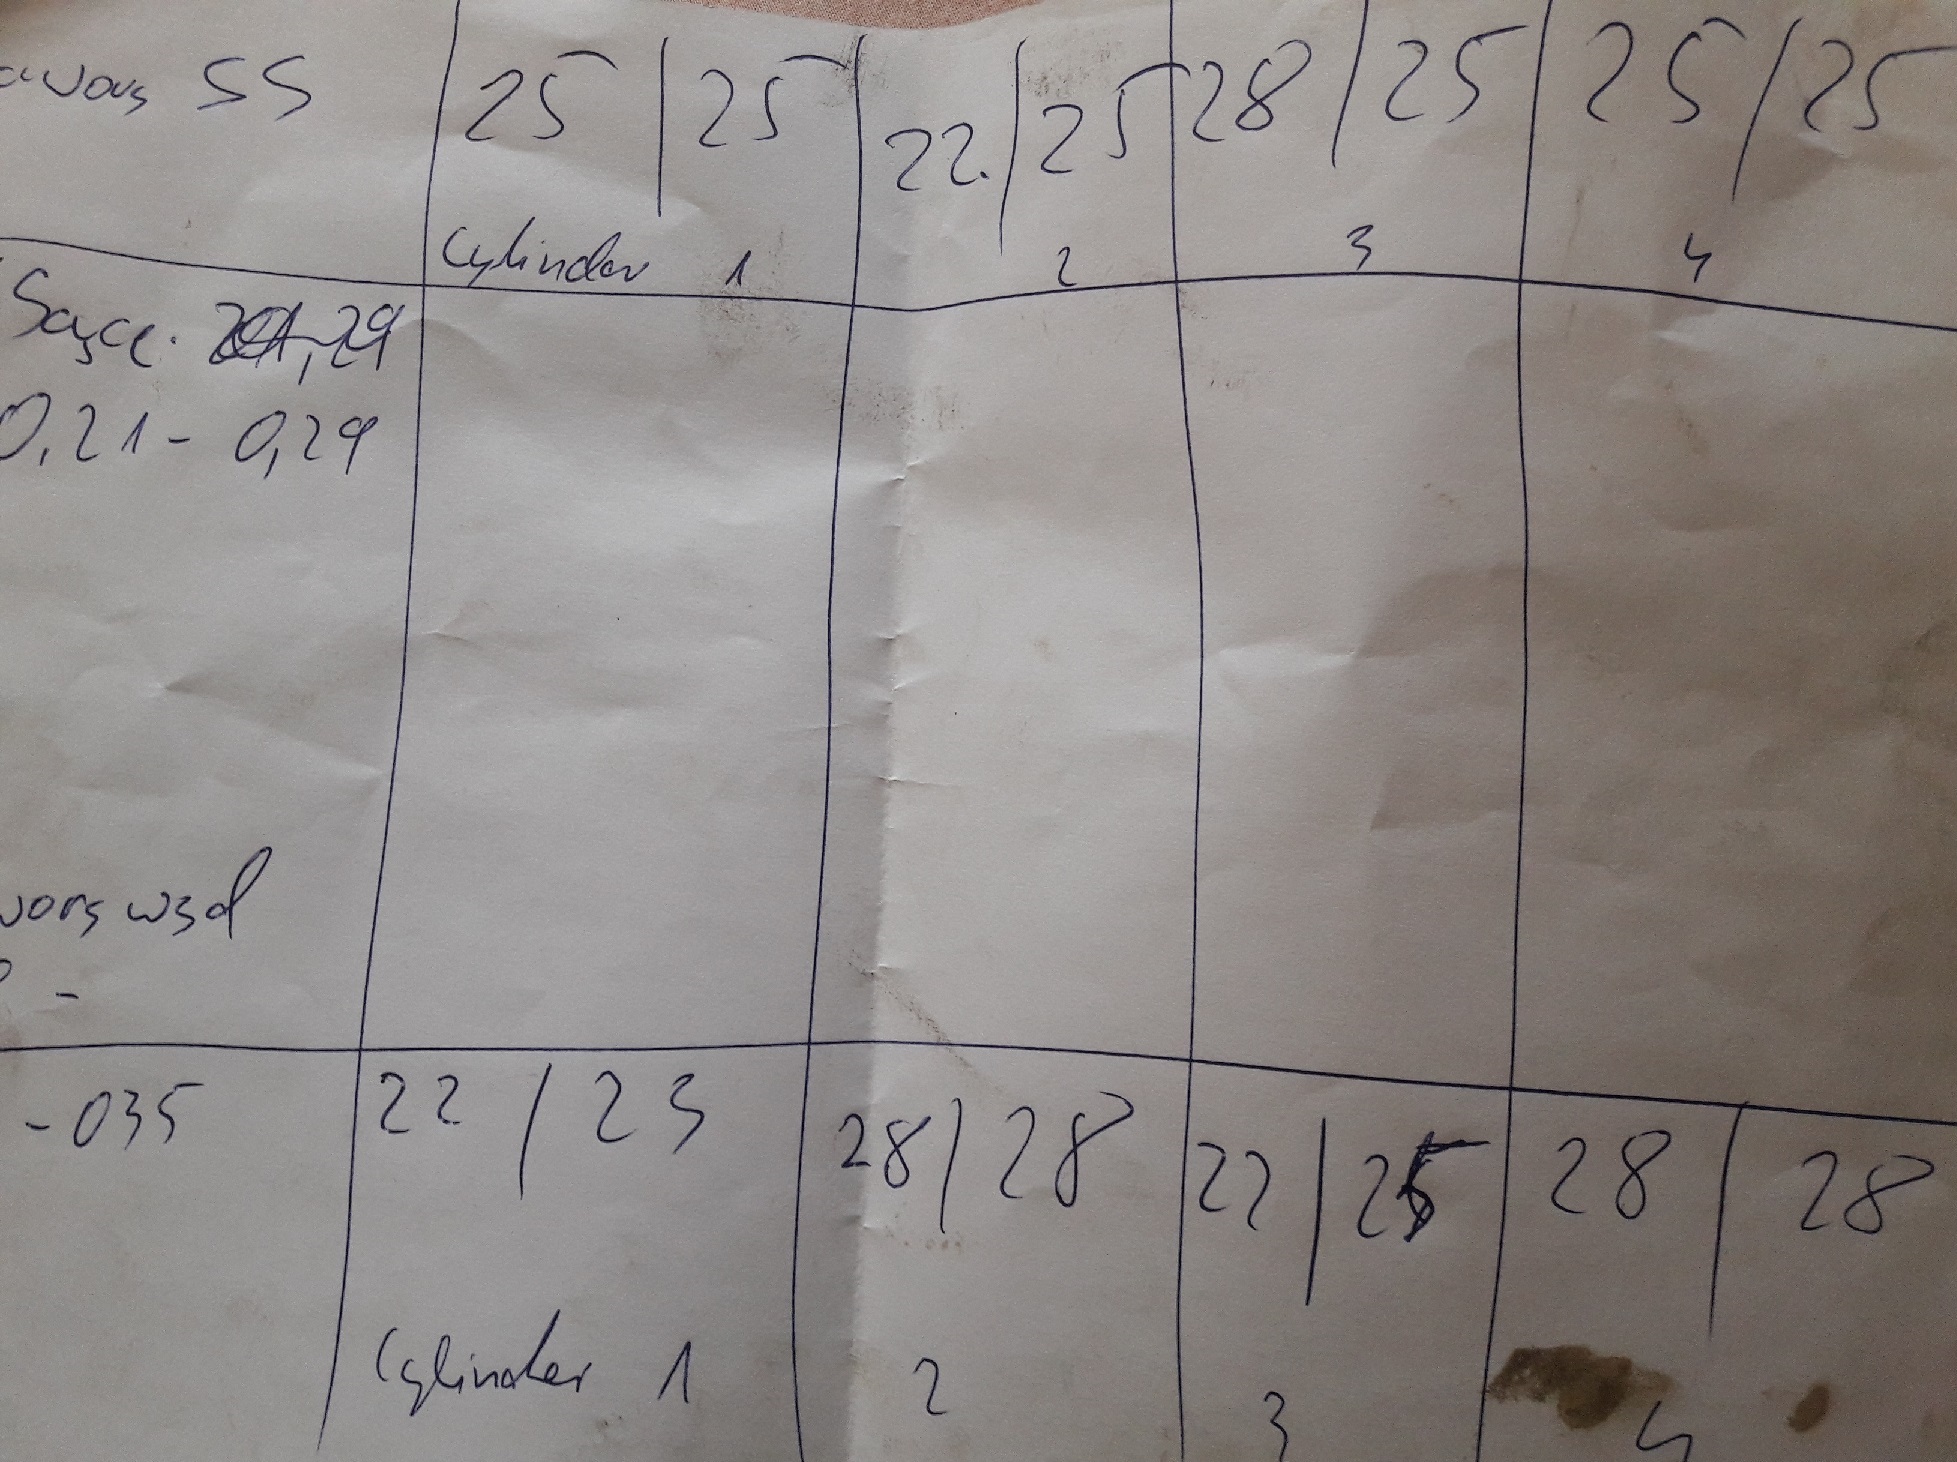 SS 25 | 25 22. | 25 28 | 25 25 | 25
Cylinder 1 2 3 4
0,21 - 0,29
- 035 22 | 23 28 | 28 22 | 25 28 | 28
Cylinder 1 2 3 4